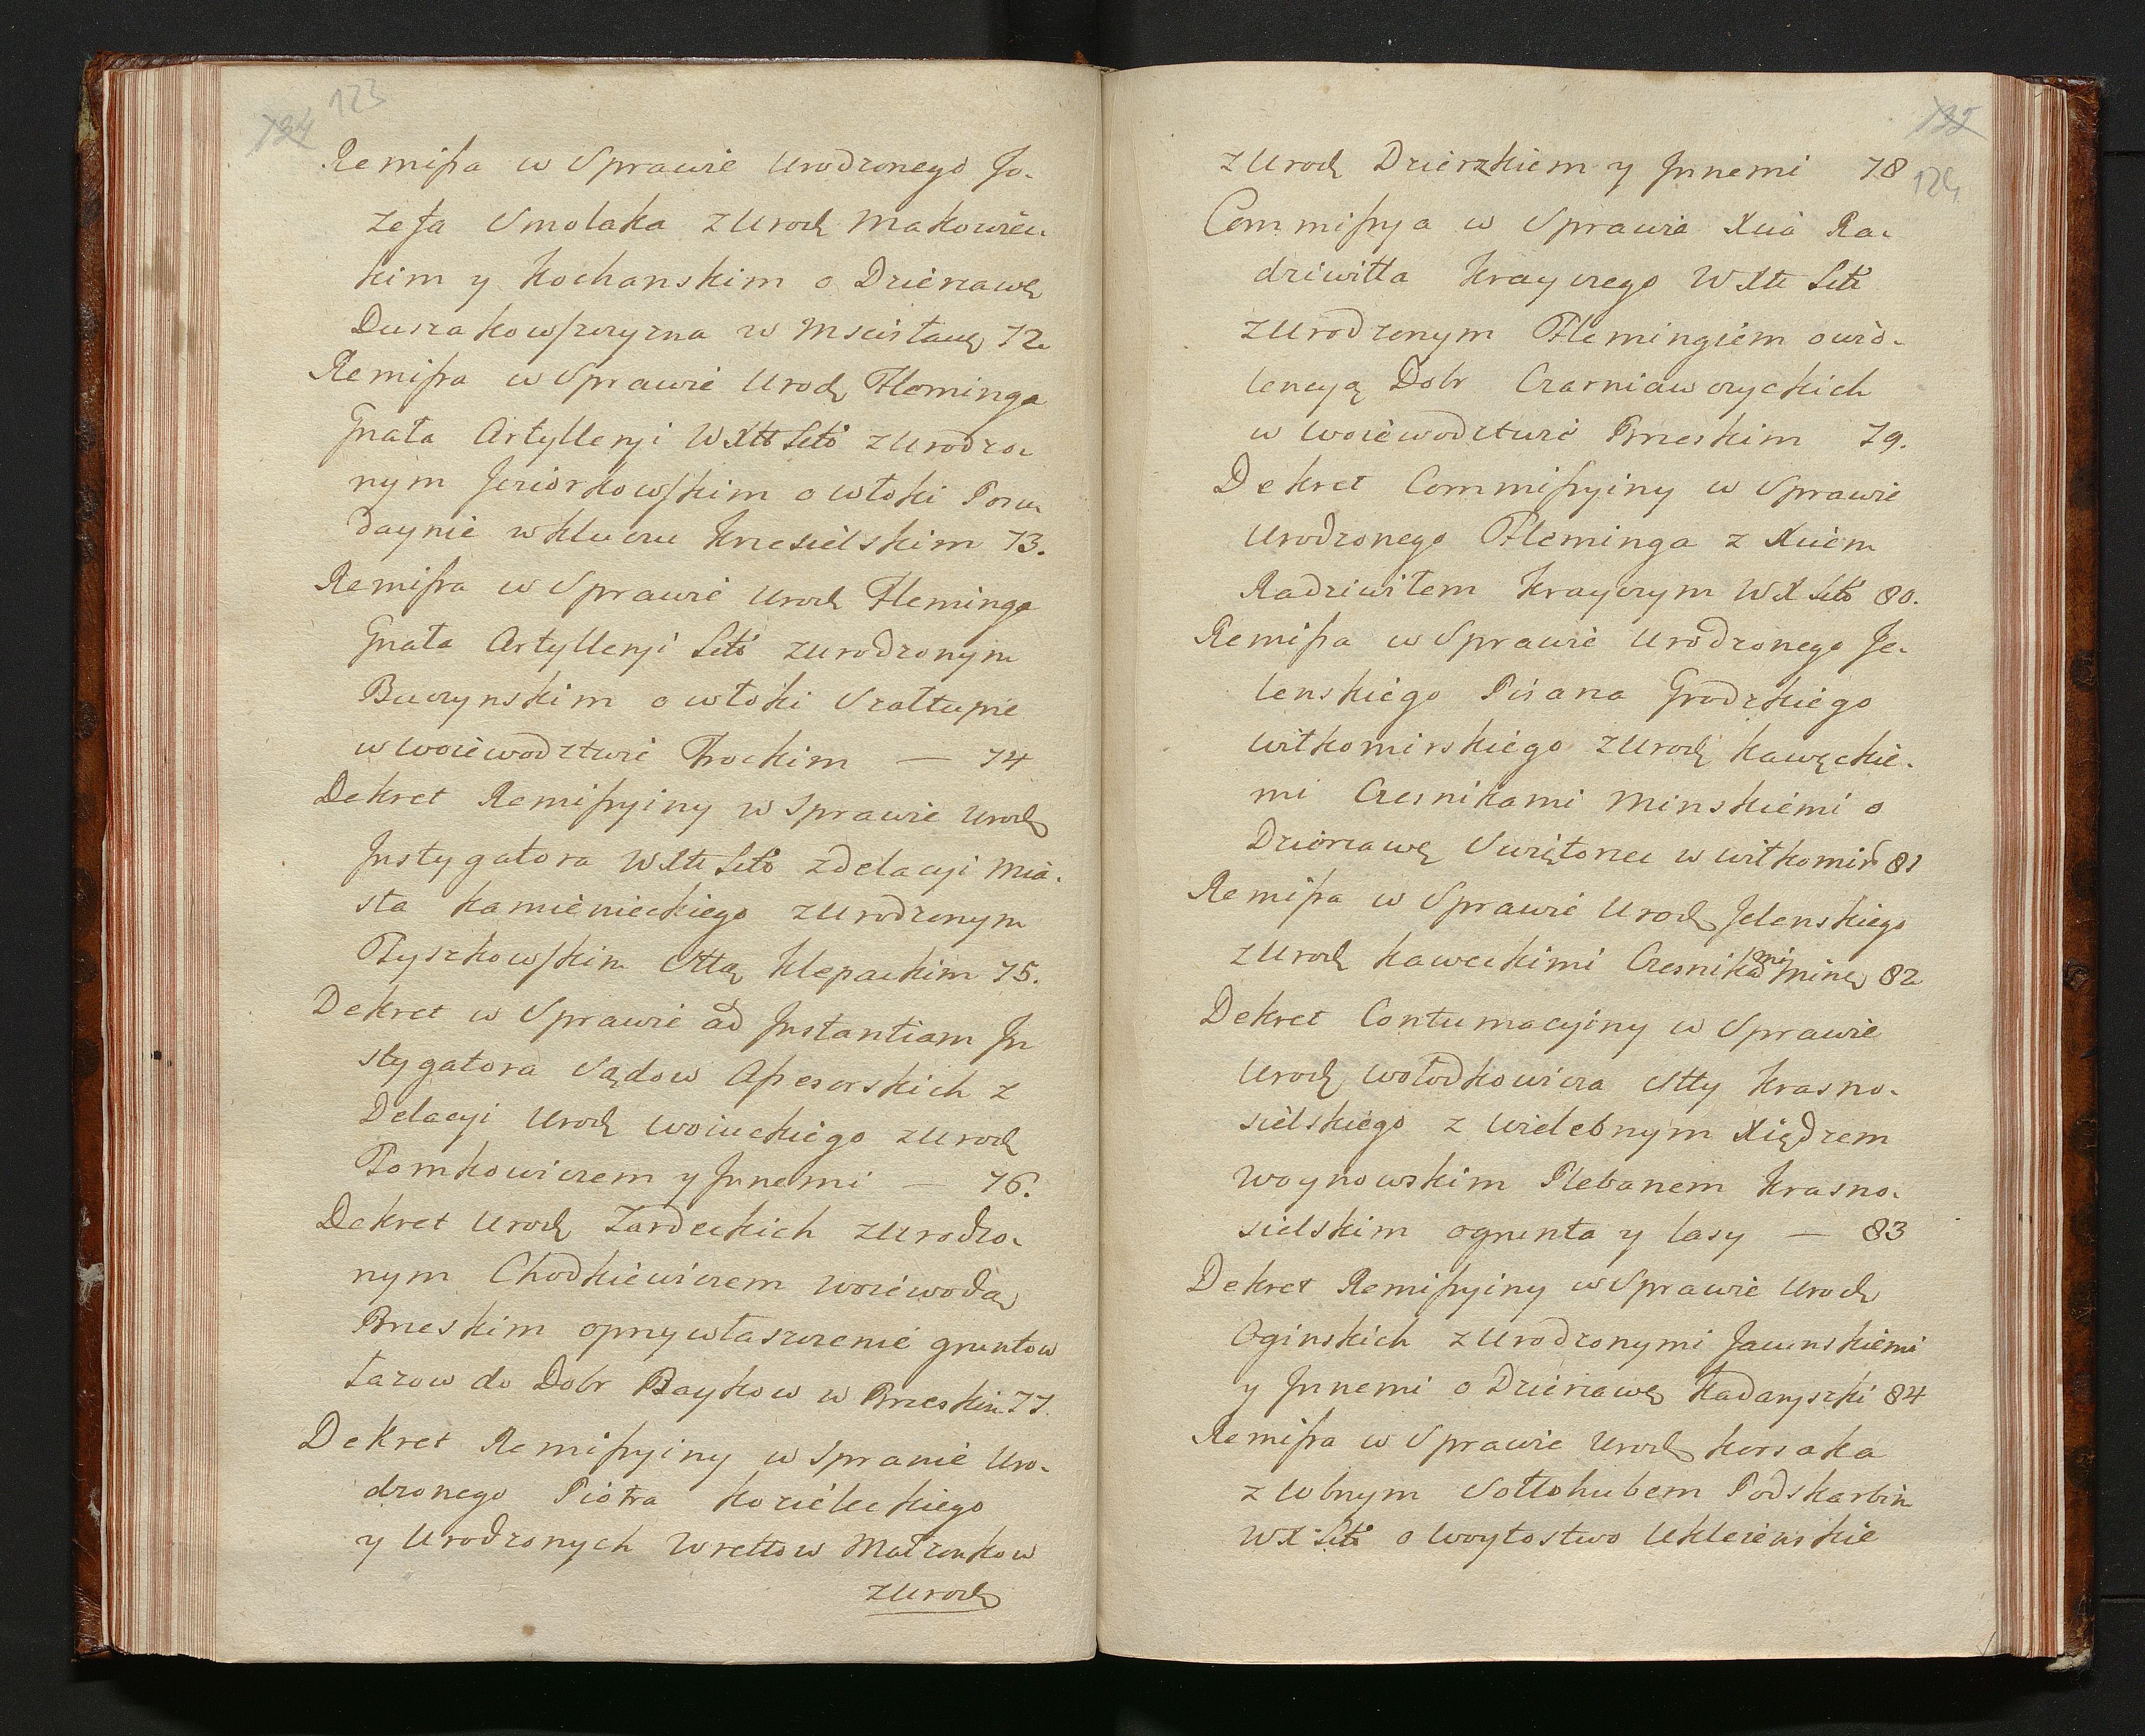 134 123
Remissa w Sprawie Urodzonego Jo-
zefa Smolaka z Urodz Makowiec-
kim y Kochanskim o Dzierżawę
Duszakowszczyzna w Mscisław 72
Remissa w Sprawie Urodz Fleminga
Gnała Artylleryi WXtt Litt z Urodzo-
nym Jeziorkowskim o włoki Poru-
daynie w Kluczu Krzesielskim 73.
Remissa w Sprawie Urodz Fleminga
Gnała Artylleryi Litt z Urodzonym
Buczynskim o włoki Szałtupie
w Woiewodztwie Trockim — 74
Dekret Remissyiny w Sprawie Urodz
Instygatora WXtt Litt z delacyi Mia-
sta Kamienieckiego z Urodzonym
Tyszkowskim Sttą Klepackim 75.
Dekret w Sprawie ad Instantiam In
stygatora Sądow Assesorskich z
Delacyi Urodz Woiuckiego z Urodz
Tomkowiczem y Innemi — 76.
Dekret Urodz Zardeckich z Urodzo-
nym Chodkiewiczem Woiewodą
Brzeskim o przywłaszczenie gruntow
Łazow do Dobr Baykow w Brzeskim 77.
Dekret Remissyiny w Spranie Uro-
dzonego Piotra Kozieleckiego
y Urodzonych Wrettow Małzonkow
z Urodz
135
124
z Urodz Dzierzkiem y Innemi 78
Commissya w Sprawie Xcia Ra-
dziwiłła Krayczego WXtt Litt
z Urodzonym Flemingiem o wio-
lencyą Dobr Czarniawczyckich
w Woiewodztwie Brzeskim 79.
Dekret Commissyiny w Sprawie
Urodzonego Fleminga z Xciem
Radziwiłem Krayczym WX Litt 80.
Remissa w Sprawie Urodzonego Je-
lenskiego Pisarza Grodzkiego
Wiłkomirskiego z Urodz Kawęckie-
mi Czesnikami Minskiemi o
Dzierzawę Swiętorzec w Wiłkomir 81
Remissa w Sprawie Urodz Jelenskiego
z Urodz Kaweckimi Czesnikami Minę 82
Dekret Contumacyiny w Sprawie
Urodz Wołodkowicza Stty Krasno-
sielskiego z Wielebnym Xiędzem
Woynowskim Plebanem Krasno-
sielskim o grunta y lasy — 83
Dekret Remissyiny w Sprawie Urodz
Oginskich z Urodzonymi Jacunskiemi
y Innemi o Dzierzawę Kadaryszki 84
Remissa w Sprawie Urodz Korsaka
z Wbnym Sołłohubem Podskarbim
WX Litt o Woytostwo Uklezienskie